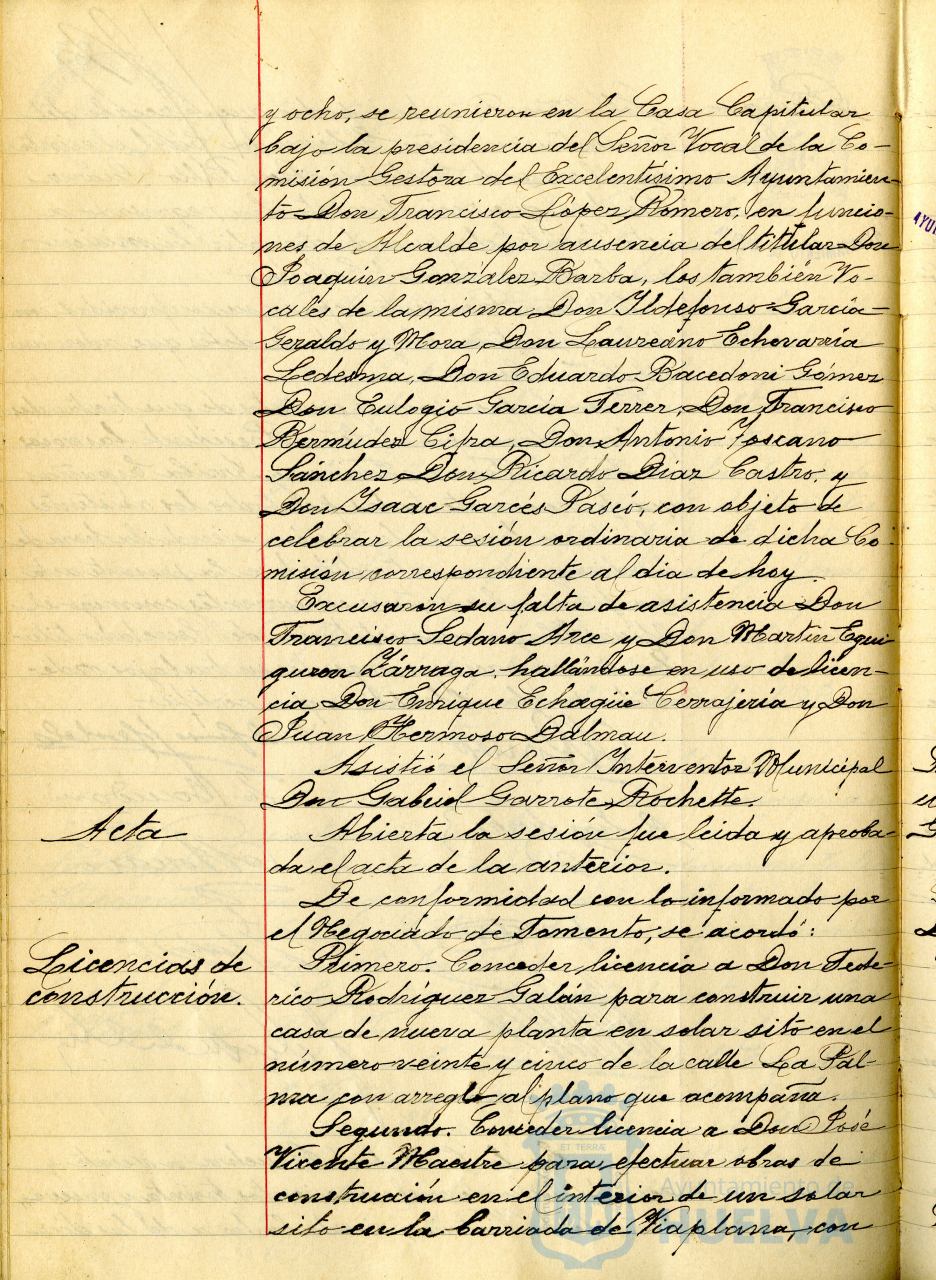 y ocho, se reunieron en la Casa Capitular
bajo la presidencia del Señor Vocal de la Co-
misión Gestora del Excelentísimo Ayuntamien-
to Don Francisco López Romero, en funcio-
nes de Alcalde por ausencia del titular Don
Joaquín González Barba, los también Vo-
cales de la misma Don Ildefonso García=
Geraldo y Mora, Don Laureano Echevarría
Ledesma, Don Eduardo Bacedoni Gómez
Don Eulogio García Ferrer, Don Francisco
Bermúdez Cifra, Don Antonio Toscano
Sánchez Don Ricardo Díaz Castro, y
Don Isaac Garcés Pascó, con objeto de
celebrar la sesión ordinaria de dicha Co-
misión correspondiente al dia de hoy.
Excusaron su falta de asistencia Don
Francisco Sedano Arce y Don Martín Egui
guren Zárraga, hallándose en uso de licen-
cia Don Enrique Echagüe Cerrajería y Don
Juan Hermoso Dalmau.
Asistió el Señor Interventor Municipal
Don Gabriel Garrote Rochette.
Acta
Abierta la sesión fue leida y aproba-
da el acta de la anterior.
De conformidad con lo informado por
el Negociado de Fomento, se acordó:
Licencias de
construcción.
Primero. Conceder licencia a Don Fede-
rico Rodríguez Galán para construir una
casa de nueva planta en solar sito en el
número veinte y cinco de la calle La Pal-
ma con arreglo al plano que acompaña.
Segundo. Conceder licencia a Don José
Vicente Maestre para efectuar obras de
construcción en el interior de un solar
sito en la barriada de Viaplana, con
Ayuntamiento de
HUELVA